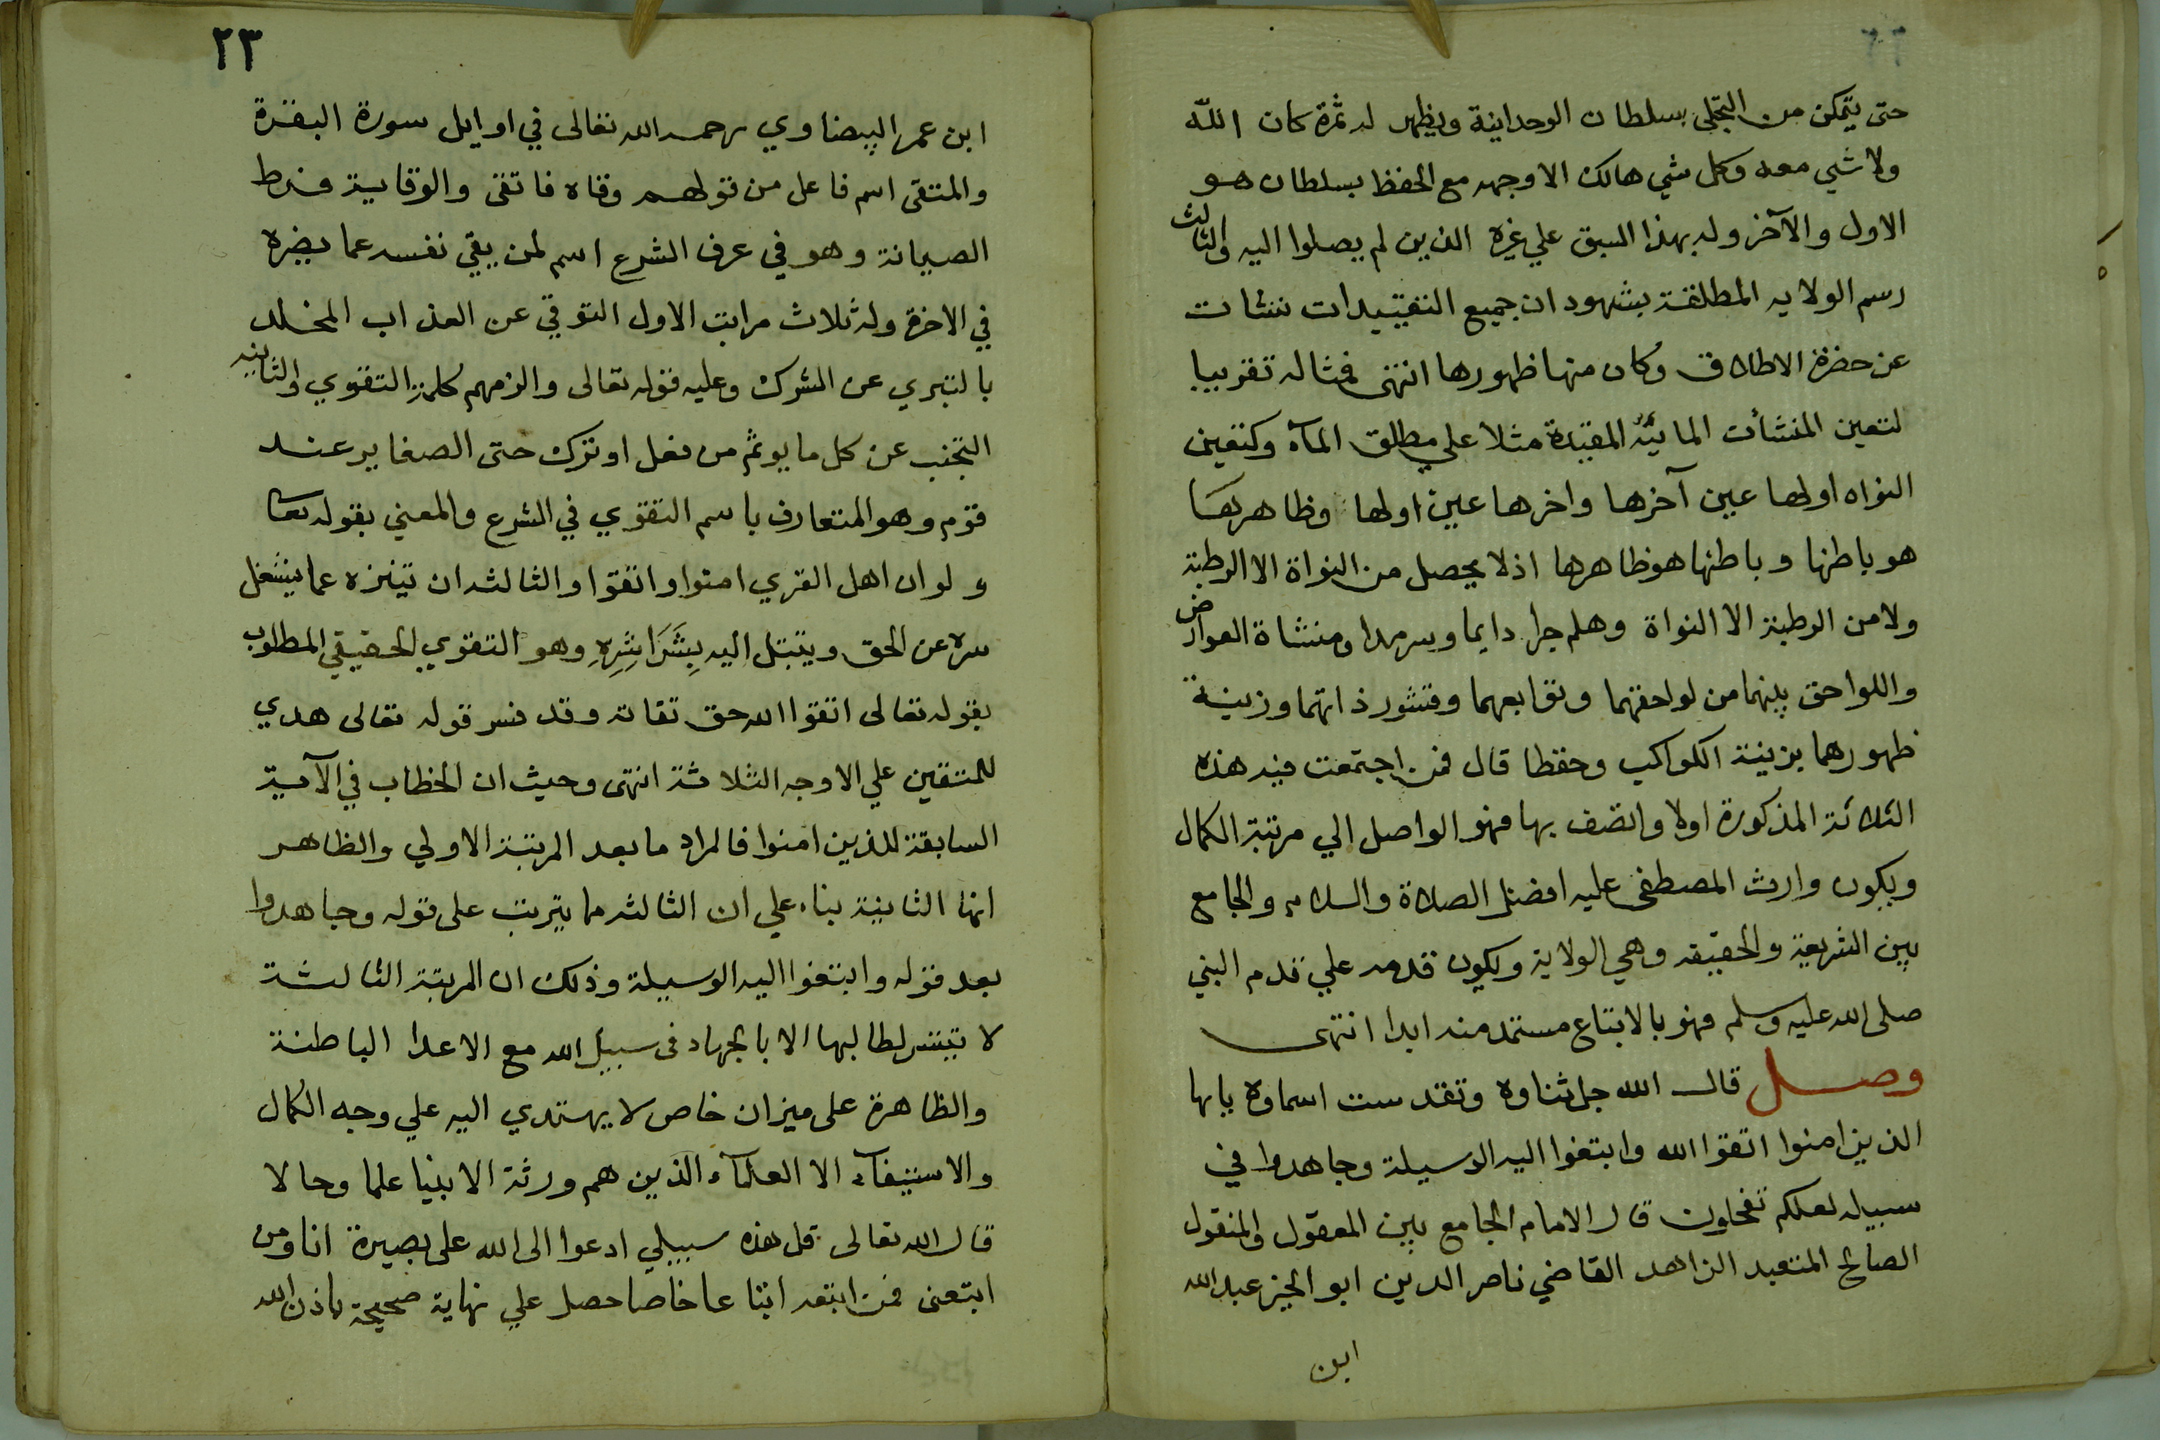 حتى يتمكن من التجلي بسلطان الوحدانية ويظهر له ثمرة كان الله
ولا شي معه وكل شي هالك الا وجهه مع الحفظ بسلطان هو
الاول والآخر وله بهذا السبق علي غيره الذين لم يصلوا اليه والثالث
رسم الولايه المطلقة بشهود ان جميع التقييدات نشات
عن حضرة الاطلاق وكان منها ظهورها انتهى فمثاله تقريبا
لتعين المنشأت المائيّة المقيّدة مثلا علي مطلق المآء وكتعين
النواه اولها عين آخرها واخرها عين اولها وظاهرها
هو باطنها وباطنها هو ظاهرها اذ لا يحصل من النواة الا الرطبة
ولا من الرطبة الا النواة وهلم جرا دايما وسرمدا ومنشاة العوارض
واللواحق بينهما من لواحقهما وتوابعهما وقشور ذاتهما وزينة
ظهورهما بزينة الكواكب وحفظا قال فمن اجتمعت فيه هذه
الثلاثة المذكورة اولا واتصف بها فهو الواصل الي مرتبة الكمال
ويكون وارث المصطفى عليه افضل الصلاة والسلام والجامع
بين الشريعة والحقيقه وهي الولاية ويكون قدمه علي قدم النبي
صلى الله عليه وسلم فهو بالاتباع مستمد منه ابدا انتهى
وصل قال الله جل ثناوه وتقدست اسماوه يايها
الذين امنوا اتقوا الله وابتغوا اليه الوسيلة وجاهدوا في
سبيله لعلكم تفحلون قال الامام الجامع بين المعقول والمنقول
الصالح المتعبد الزاهد القاضي ناصر الدين ابو الخير عبد الله
ابن
٢٣
ابن عمر البيضاوي رحمه الله تعالى في اوايل سورة البقرة
والمتقى اسم فاعل من قولهم وقاه فاتقى والوقاية فرط
الصيانة وهو في عرف الشرع اسم لمن يقي نفسه عما يضره
في الاخرة وله ثلاث مراتب الاول التوقي عن العذاب المخلد
بالتبري عن الشرك وعليه قوله تعالى والزمهم كلمة التقوي والثانيه
التجنب عن كل ما يوثم من فعل او ترك حتى الصغاير عند
قوم وهو المتعارف باسم التقوي في الشرع والمعني بقوله تعا
ولو ان اهل القري امنوا واتقوا والثالثه ان يتنزه عما يشغل
سره عن الحق ويتبتل اليه بِشَرَاشِرِهِ وهو التقوي الحقيقي المطلوب
بقوله تعالى اتقوا الله حق تقاته وقد فسر قوله تعالى هدي
للمتقين علي الاوجه الثلاثة انتهى وحيث ان الخطاب في الآية
السابقة للذين امنوا فالمراد ما بعد المرتبة الاولي والظاهر
انها الثانية بناء علي ان الثالثه مما يترتب على قوله وجاهدوا
بعد قوله وابتغوا اليه الوسيلة وذلك ان المرتبة الثالثة
لا تيسر لطالبها الا بالجهاد في سبيل الله مع الاعدا الباطنة
والظاهرة على ميزان خاص لا يهتدي اليه علي وجه الكمال
والاستيفآء الا العلمآء الذين هم ورثة الانبيا علما وحالا
قال الله تعالى قل هذه سبيلي ادعوا الى الله على بصيرة انا ومن
اتبعنى فمن اتبعه اتباعا خاصا حصل علي نهاية صحيحة باذن الله